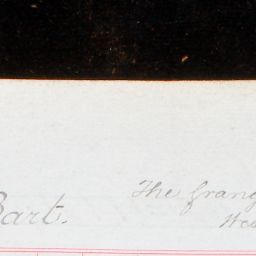 Bart. The Grang